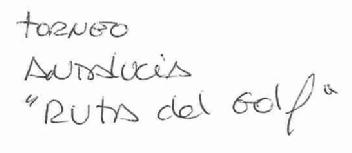 TORNEO
ANDALUCIA
"RUTA del Golf"